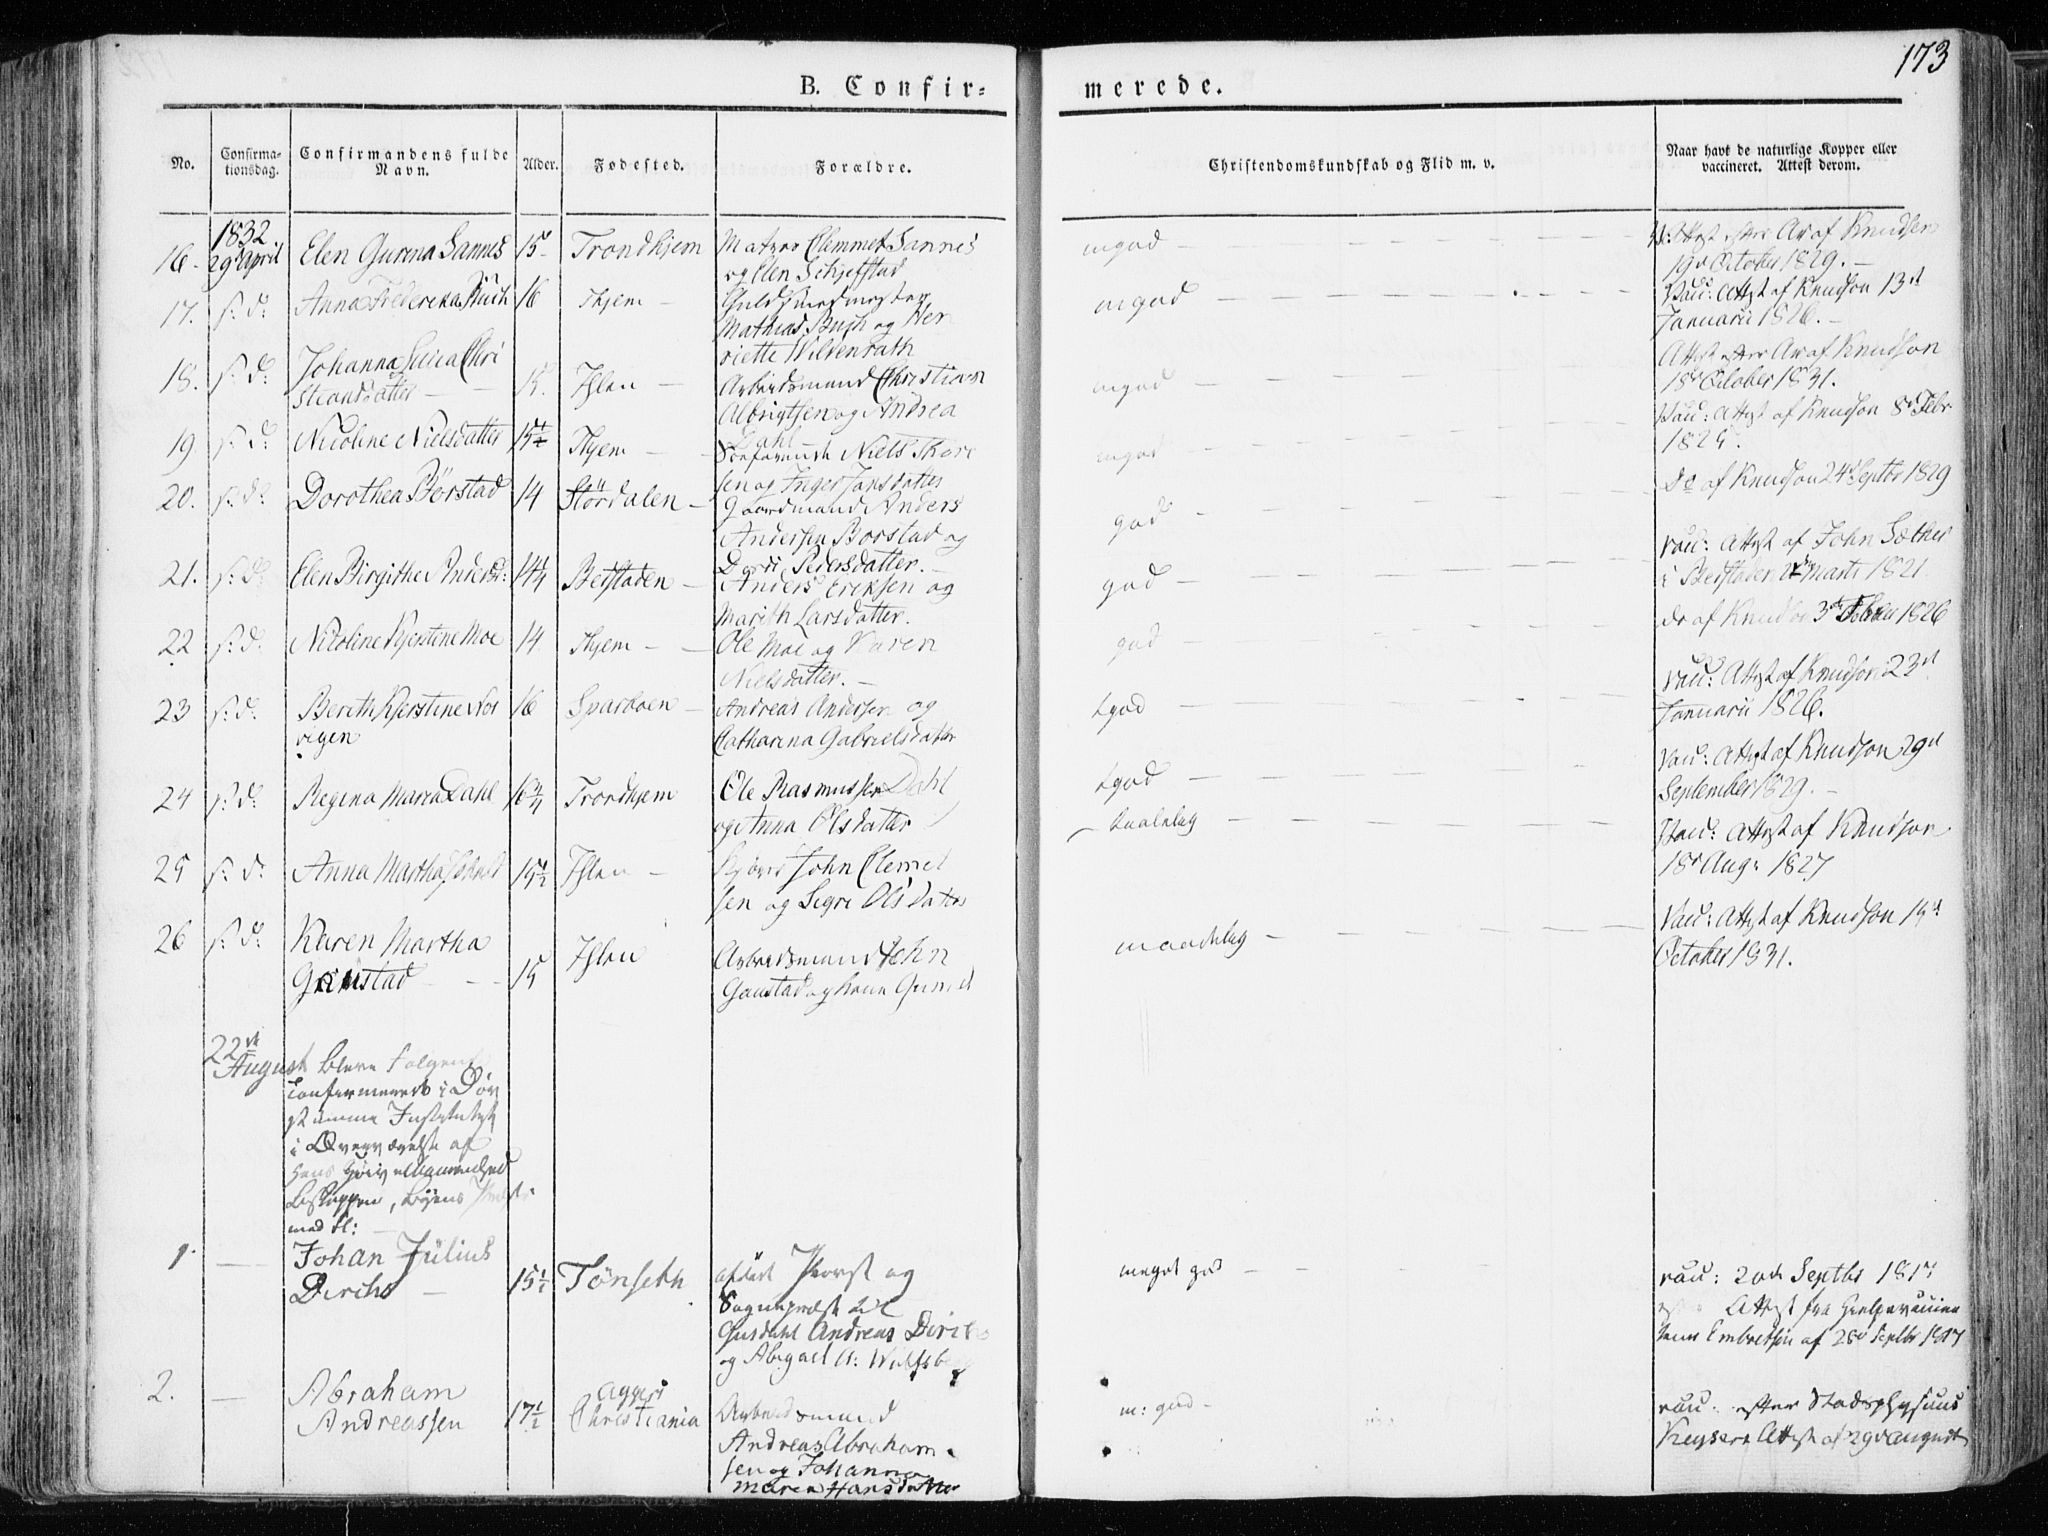 173
B. Confir=
merede.
No.
Confirma-
tionsdag.
Confirmandens fulde
Navn.
Alder.
Fødested.
Forældre.
Christendomskundskab og Flid m. v.
Naar havt de naturlige Kopper eller
vaccineret. Attest derom.
1832
16. 29d April Elen Gurina Sannes 15 Trondhjem Clemmet Sannes
og Elen
mgod
Attest af Knudson
19d October 1829.
17. s: d: Anna Frederika Buch 16 Thjem Guldsmedmester
Mathias Buch og Hen
riette Wildenrath
mgod
Vac: Attest af Knudson 13d
Januarii 1826.
18. s: d: Johanna Chri
stiansdatter 15. Ihlen Arbeidsmand Christian
og Andrea
Dahl
mgod
Attest af Knudson
18d October 1831.
19. s: d: Nicoline Nielsdatter 15½ Thjem Niels Thore
sen og Inger Jansdatter
mgod
Vac: Attest af Knudson 8d Febr
20. s: d: Dorothea Börstad 14 Stördalen Gaardmand Anders
Andersen Borstad og
Dordi Pedersdatter.
god
Do af Knudson 24d Septbr 1829
21. s: d: Elen Birgithe Andersd: 14¼ Bedstaden Anders Ericksen og
Marith Larsdatter.
god
vac: Attest af John Sæther
i Bedstaden Marts 1821
22 s: d: Nicoline Kjerstine Moe 14 Thjem Ole Moe og Karen
Nielsdatter.
god
do af Knudson 3d 1826
23 s: d: Berith Kjerstine Nor
vigen 16 Sparboen Andreas Andersen og
Catharina Gabrielsdatter
tgod
vac: Attest af Knudson 23d
Januarii 1826.
24 s: d: Regina Maria Dahl Trondhjem Ole Rasmussen Dahl
og Anna Olsdatter
tgod
Vac: Attest af Knudson 29d
September 1829.
25 s: d: Anna Martha 15½ Ihlen John Clemet
sen og Sigri Olsdatter
taalelig
Vac: Attest af Knudson
18d Aug: 1827
26 s: d: Karen Martha
Gaustad 15 Ihlen Arbeidsmand John
Gaustad og
maadelig
Vac: Attest af Knudson 15d
October 1831.
22de
August bleve Følgende
confirmerede i Döv
stumme Institutet
i Overværelse af
Hans Höivelbaarenhed
Biskoppen, Byens
med fl:
1. Johan Julius
Dirchs 15½ Tönseth afdöde Provst og
Sognepræst til
Andreas Dirchs
og Abigael
meget god
vac: 20de Septbr 1817
Attest fra
Embretsen af 28d Septbr 1817
2. Abraham
Andreassen 17½ Aggers
Christiania Arbeidsmand
Andreas Abraham
sen og Johanna
Maria Hansdatter
m: god
vac: efter Stadsphysicus
Keysers Attest af 29d August